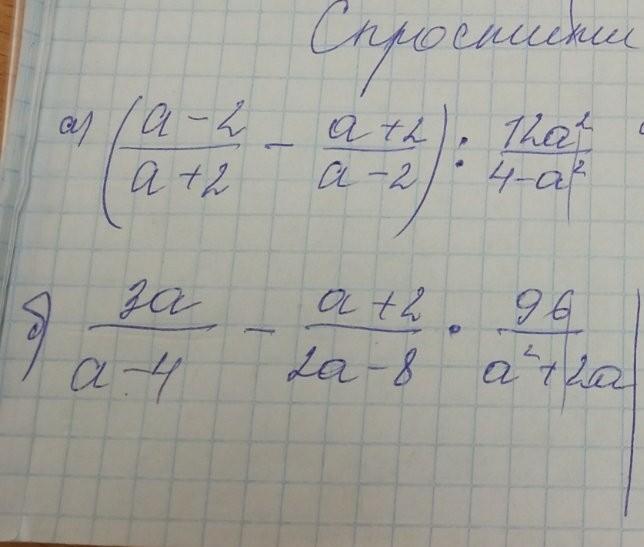 Спростити
а) ((a-2)/(a+2) - (a+2)/(a-2)) : 12a²/(4-a²)
б) 3a/(a-4) - (a+2)/(2a-8) · 96/(a²+2a)